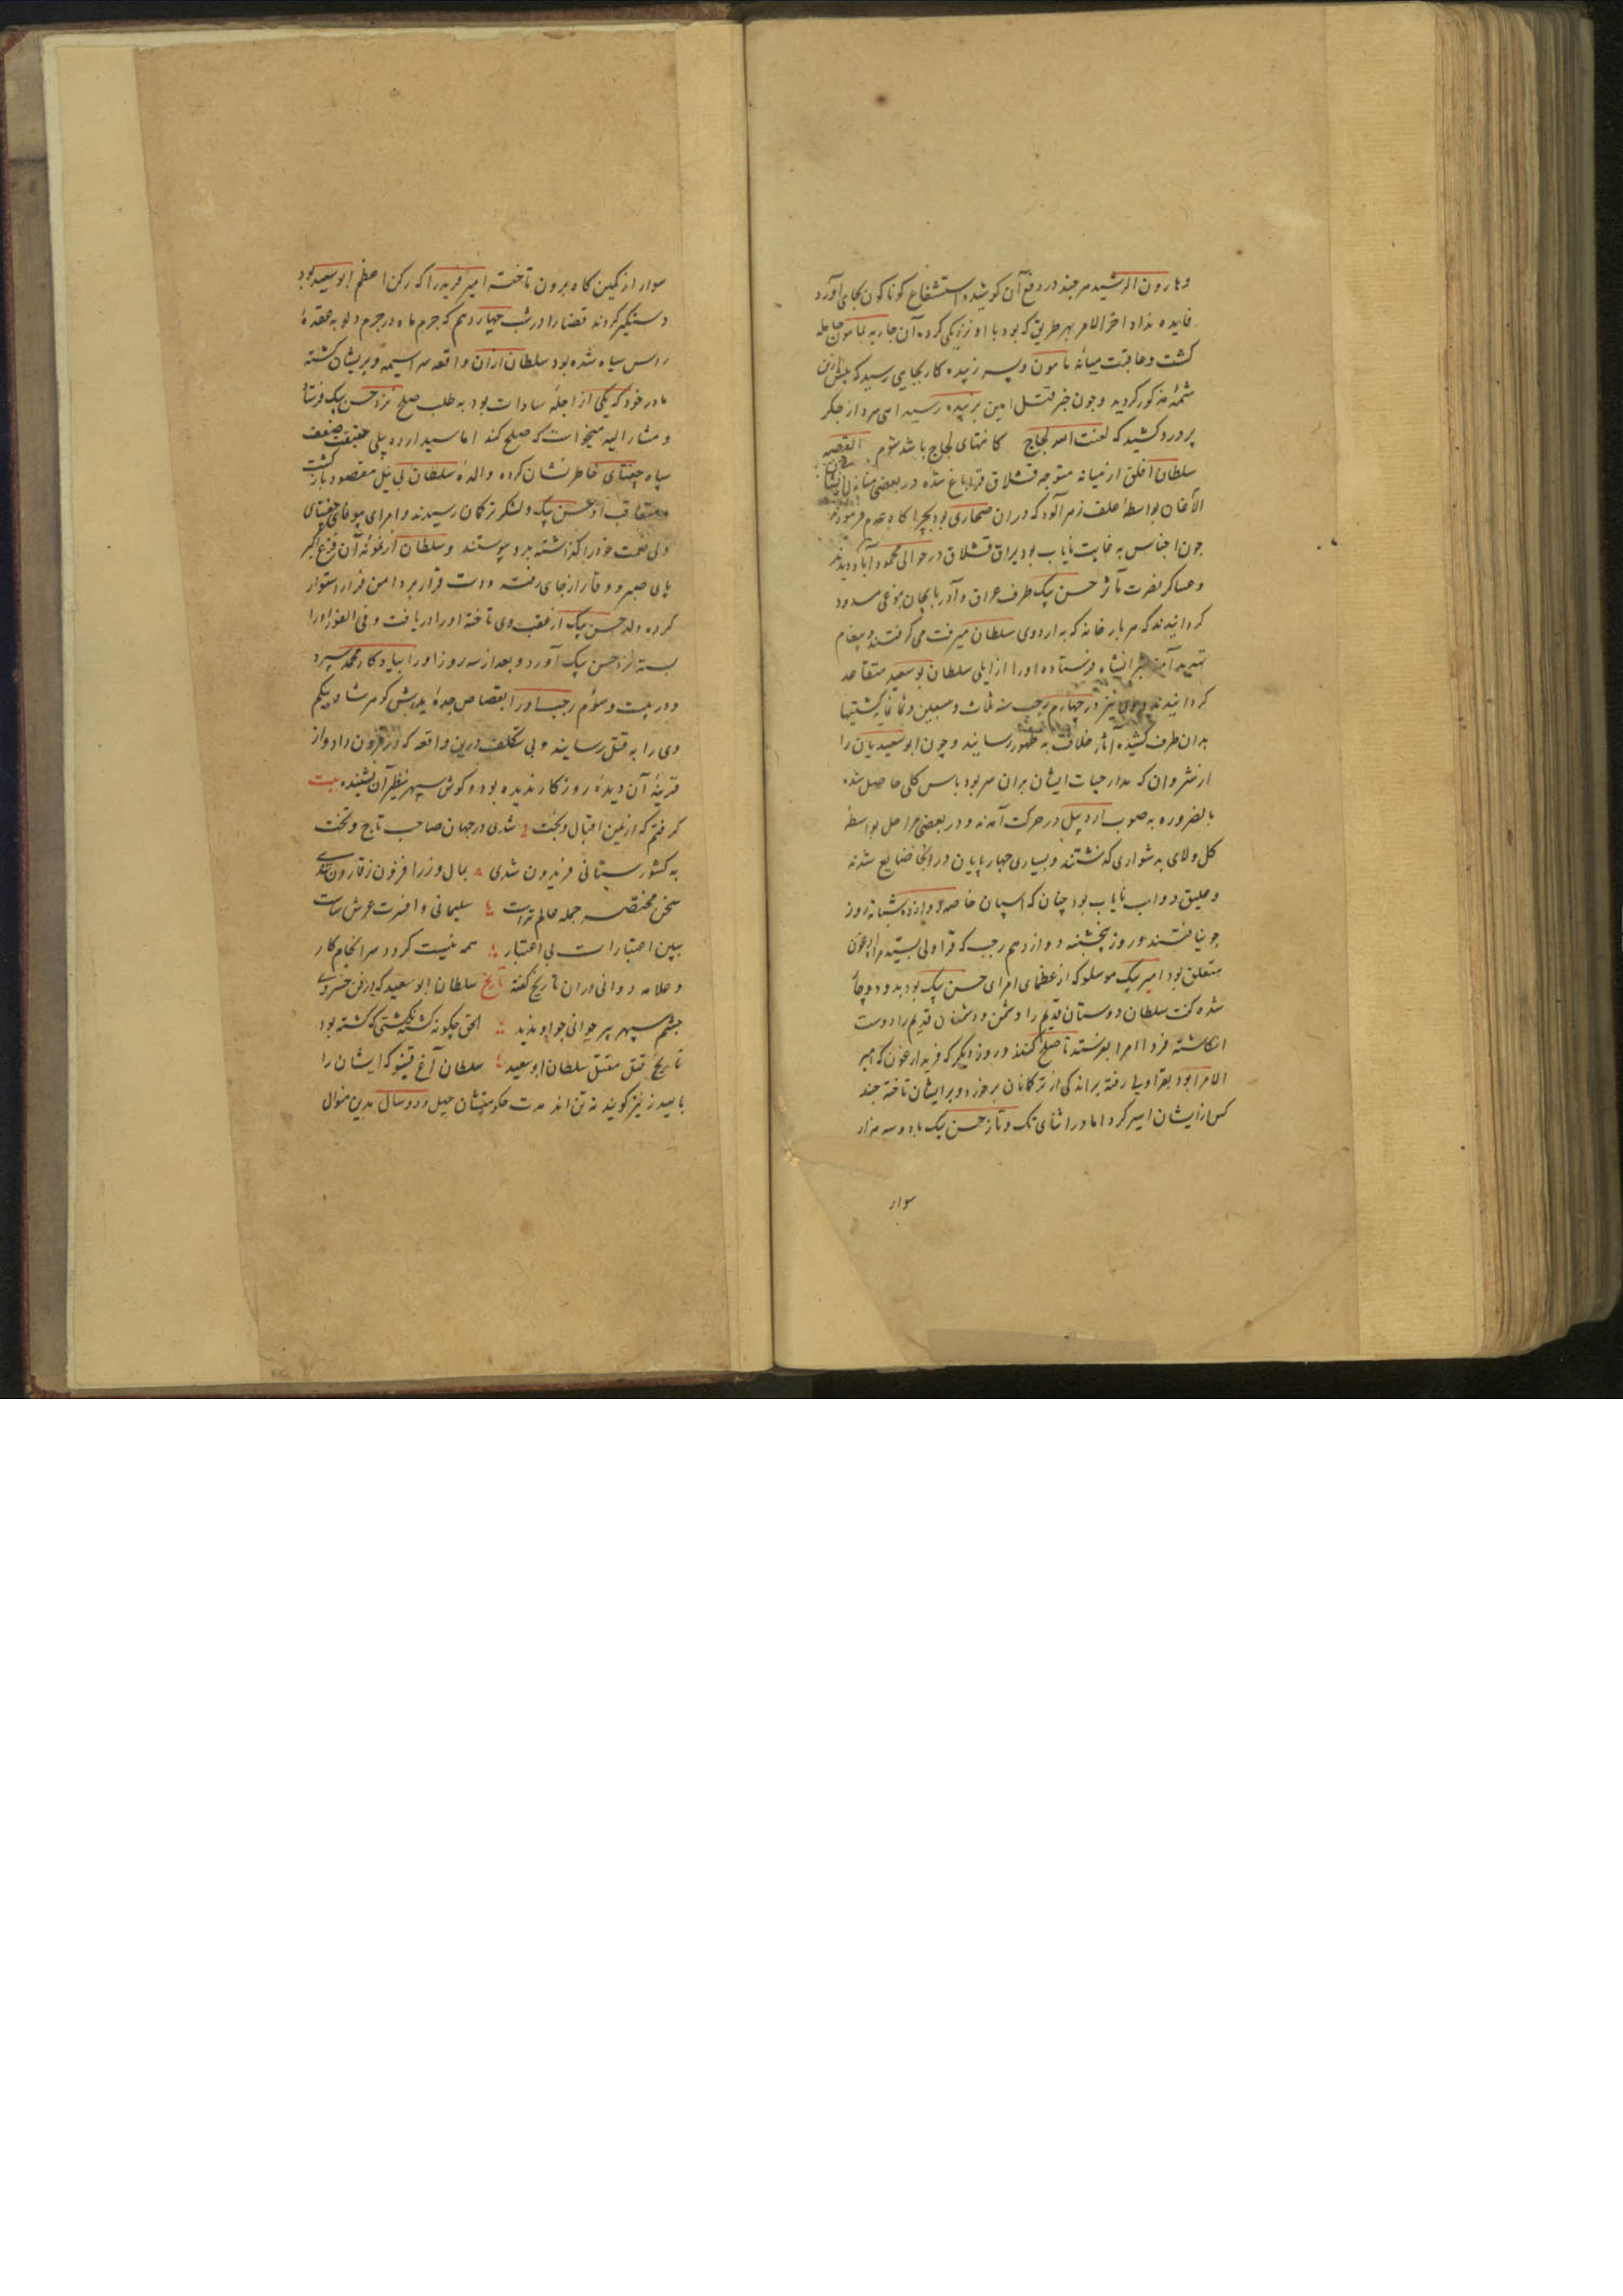 و هارون الرشید هر چند در دفع آن کوشیده استشفاع کوناکون بجای آورد
فایده نداد اخر الامر بهر طریق که بود با او نزدیکی کرده آن جاریه بمامون حامله
کشت و عاقبت میانه مامون و پسر زبیده کار بجایی رسید که پیش ازین
شمهٔ مذکور کردید و چون خبر قتل امین بزبیده رسید اهی سرد از جکر
پر درد کشید که لعنت الله لجاج کانتهای لجاج باشد شوم القصه
سلطان افاق از میانه متوجه قشلاق قراباغ شده در بعضی منازل
الاغان بواسطهٔ علف زهر آلود که در ان صحاری بود بچراکاه عدم فرمودند
چون اجناس به غایت نایاب بود یراق قشلاق در حوالی محمود آباد دیدند
و عساکر نصرت مآثر حسن بیک طرف عراق و آذربایجان بنوعی مسدود
کردانیدند که هر بار خانه که به اردوی سلطان میرفت می کرفتند و پیغام
تهدید آمیز بشروانشاه فرستاده او را از ایلی سلطان بو سعید متقاعد
کردانیدند و وی نیز در چهارم رجب سنه ثلث و سبعین و ثمانمایه کشتیها
بدان طرف کشیده آثار خلاف به ظهور رسانید و چون ابو سعیدیان را
از شروان که مدار حیات ایشان بران سر بود یاس کلی حاصل شد
بالضروره به صوب اردبیل در حرکت آمدند و در بعضی مراحل بواسطهٔ
کل و لای به دشواری کذشتند و بسیاری چهارپایان در انجا ضایع شدند
و علیق دواب نایاب بود چنان که اسپان خاصه دوازده شبانه روز
جو نیافتند و روز پنجشنبه دوازدهم رجب که قراولی بسید مراد ارغون
متعلق بود امیر بیک موصلو که از عظمای امرای حسن بیک بود بدو دوچار
شده کفت سلطان دوستان قدیم را دشمن و دشمنان قدیم را دوست
انکاشته فردا امرا بفرستد تا صلح کنند و روز دیکر که فرید ارغون که امیر
الامرا بود بقراولی رفته براندکی از ترکمانان برخورد و بر ایشان تاخته چند
کس از ایشان اسیر کرد اما در اثنای تک و تاز حسن بیک با دو سه هزار
سوار
سوار از کمین کاه برون تاخته امیر فرید را که رکن اعظم ابو سعید بود
دستکیر کردند قضا را در شب چهاردهم که جرم ماه در جرم دلو به عقدهٔ
راس سیاه شده بود سلطان از ان واقعه سراسیمه و پریشان کشته
مادر خود که یکی از اجلهٔ سادات بود به طلب صلح نزد حسن بیک فرستاد
و مشار الیه میخواست که صلح کند اما سید اردبیلی حقیقت ضعف
سپاه چغتای خاطر نشان کرده والدهٔ سلطان بی نیل مقصود بازکشت
متعاقب او حسن بیک و لشکر ترکمان رسیدند و امرای بیوفای چغتای
ولی نعمت خود را کذاشته بدو پیوستند و سلطان از غوغای آن فزع اکبر
پای صبر و وقار از جای رفته و دست قرار بر دامن فرار استوار
کرده ولد حسن بیک از عقب وی تاخته او را دریافت و فی الفور او را
بسته نزد حسن بیک آورد و بعد از سه روز او را بیادکار محمد سپرد
و در بیست و سوم رجب او را بقصاص جدهٔ پدرش کوهرشاد بیکم
وی را به قتل رسانید و بی تکلف درین واقعه که در قرون و ادوار
قرینهٔ آن دیدهٔ روزکار ندیده بود و کوش سپهر نظیر آن نشنیده بیت
کرفتم که از یمن اقبال و بخت شدی در جهان صاحب تاج و تخت
به کشور ستانی فریدون شدی بمال و زر افزون ز قارون شدی
سخن مختصر جمله عالم تراست سلیمانی و افسرت عرش ساست
ببین اعتبارات بی اعتبار همه نیست کردد سرانجام کار
و علامه دوانی در ان تاریخ کفته تاریخ سلطان ابو سعید که در فن خسروی
چشم سپهر پیر جوانی چو او ندید الحق چکونه کشته نکشتی که کشته بود
تاریخ قتل مقتل سلطان ابو سعید سلطان آغ قینو که ایشان را
بایندر نیز کویند نه تن اند مدت حکومتشان چهل و دو سال بدین منوال